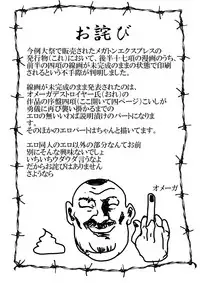 お詫び
今例大祭で販売されたメガトンエクスプレスの
発行物(これ)において、後半十七項の漫画のうち、
前半の四項の線画が未完成のままの状態で印刷
されるという不手際が判明しました。
線画が未完成のまま発表されたのは、
オメーガデストロイヤー氏(おれ)の
作品の序盤四項(ここ開いて四ページ)こいしが
勇儀に再び襲い掛かるまでの
エロの無いいわば説明付けのパートになります。
そのほかのエロパートはちゃんと描いてます。
エロ同人のエロ以外の部分なんてお前
別にそんな興味ないでしょ
いちいちウダウダ言うなよ
だからお詫びはありません
さようなら
オメーガ